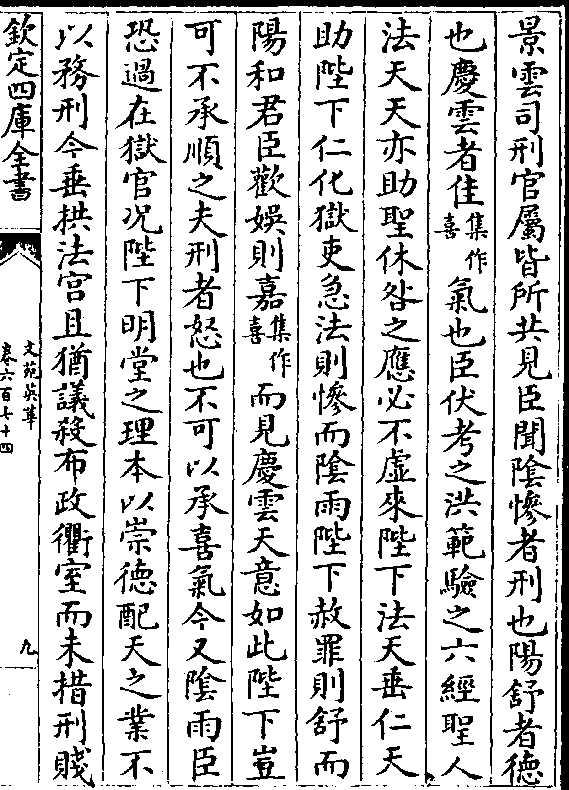 景雲司刑官屬皆所共見臣聞陰慘者刑也陽舒者德
也慶雲者佳集作喜氣也臣伏考之洪範驗之六經聖人
法天天亦助聖休咎之應必不虛來陛下法天垂仁天
助陛下仁化獄吏急法則慘而陰雨陛下赦罪則舒而
陽和君臣歡娛則嘉集作喜而見慶雲天意如此陛下豈
可不承順之夫刑者怒也不可以承喜氣今又陰雨臣
恐過在獄官況陛下明堂之理本以崇德配天之業不
以務刑今垂拱法宫且猶議殺布政衢室而未措刑賤
欽定四庫全書
文苑英華
卷六百七十四
九